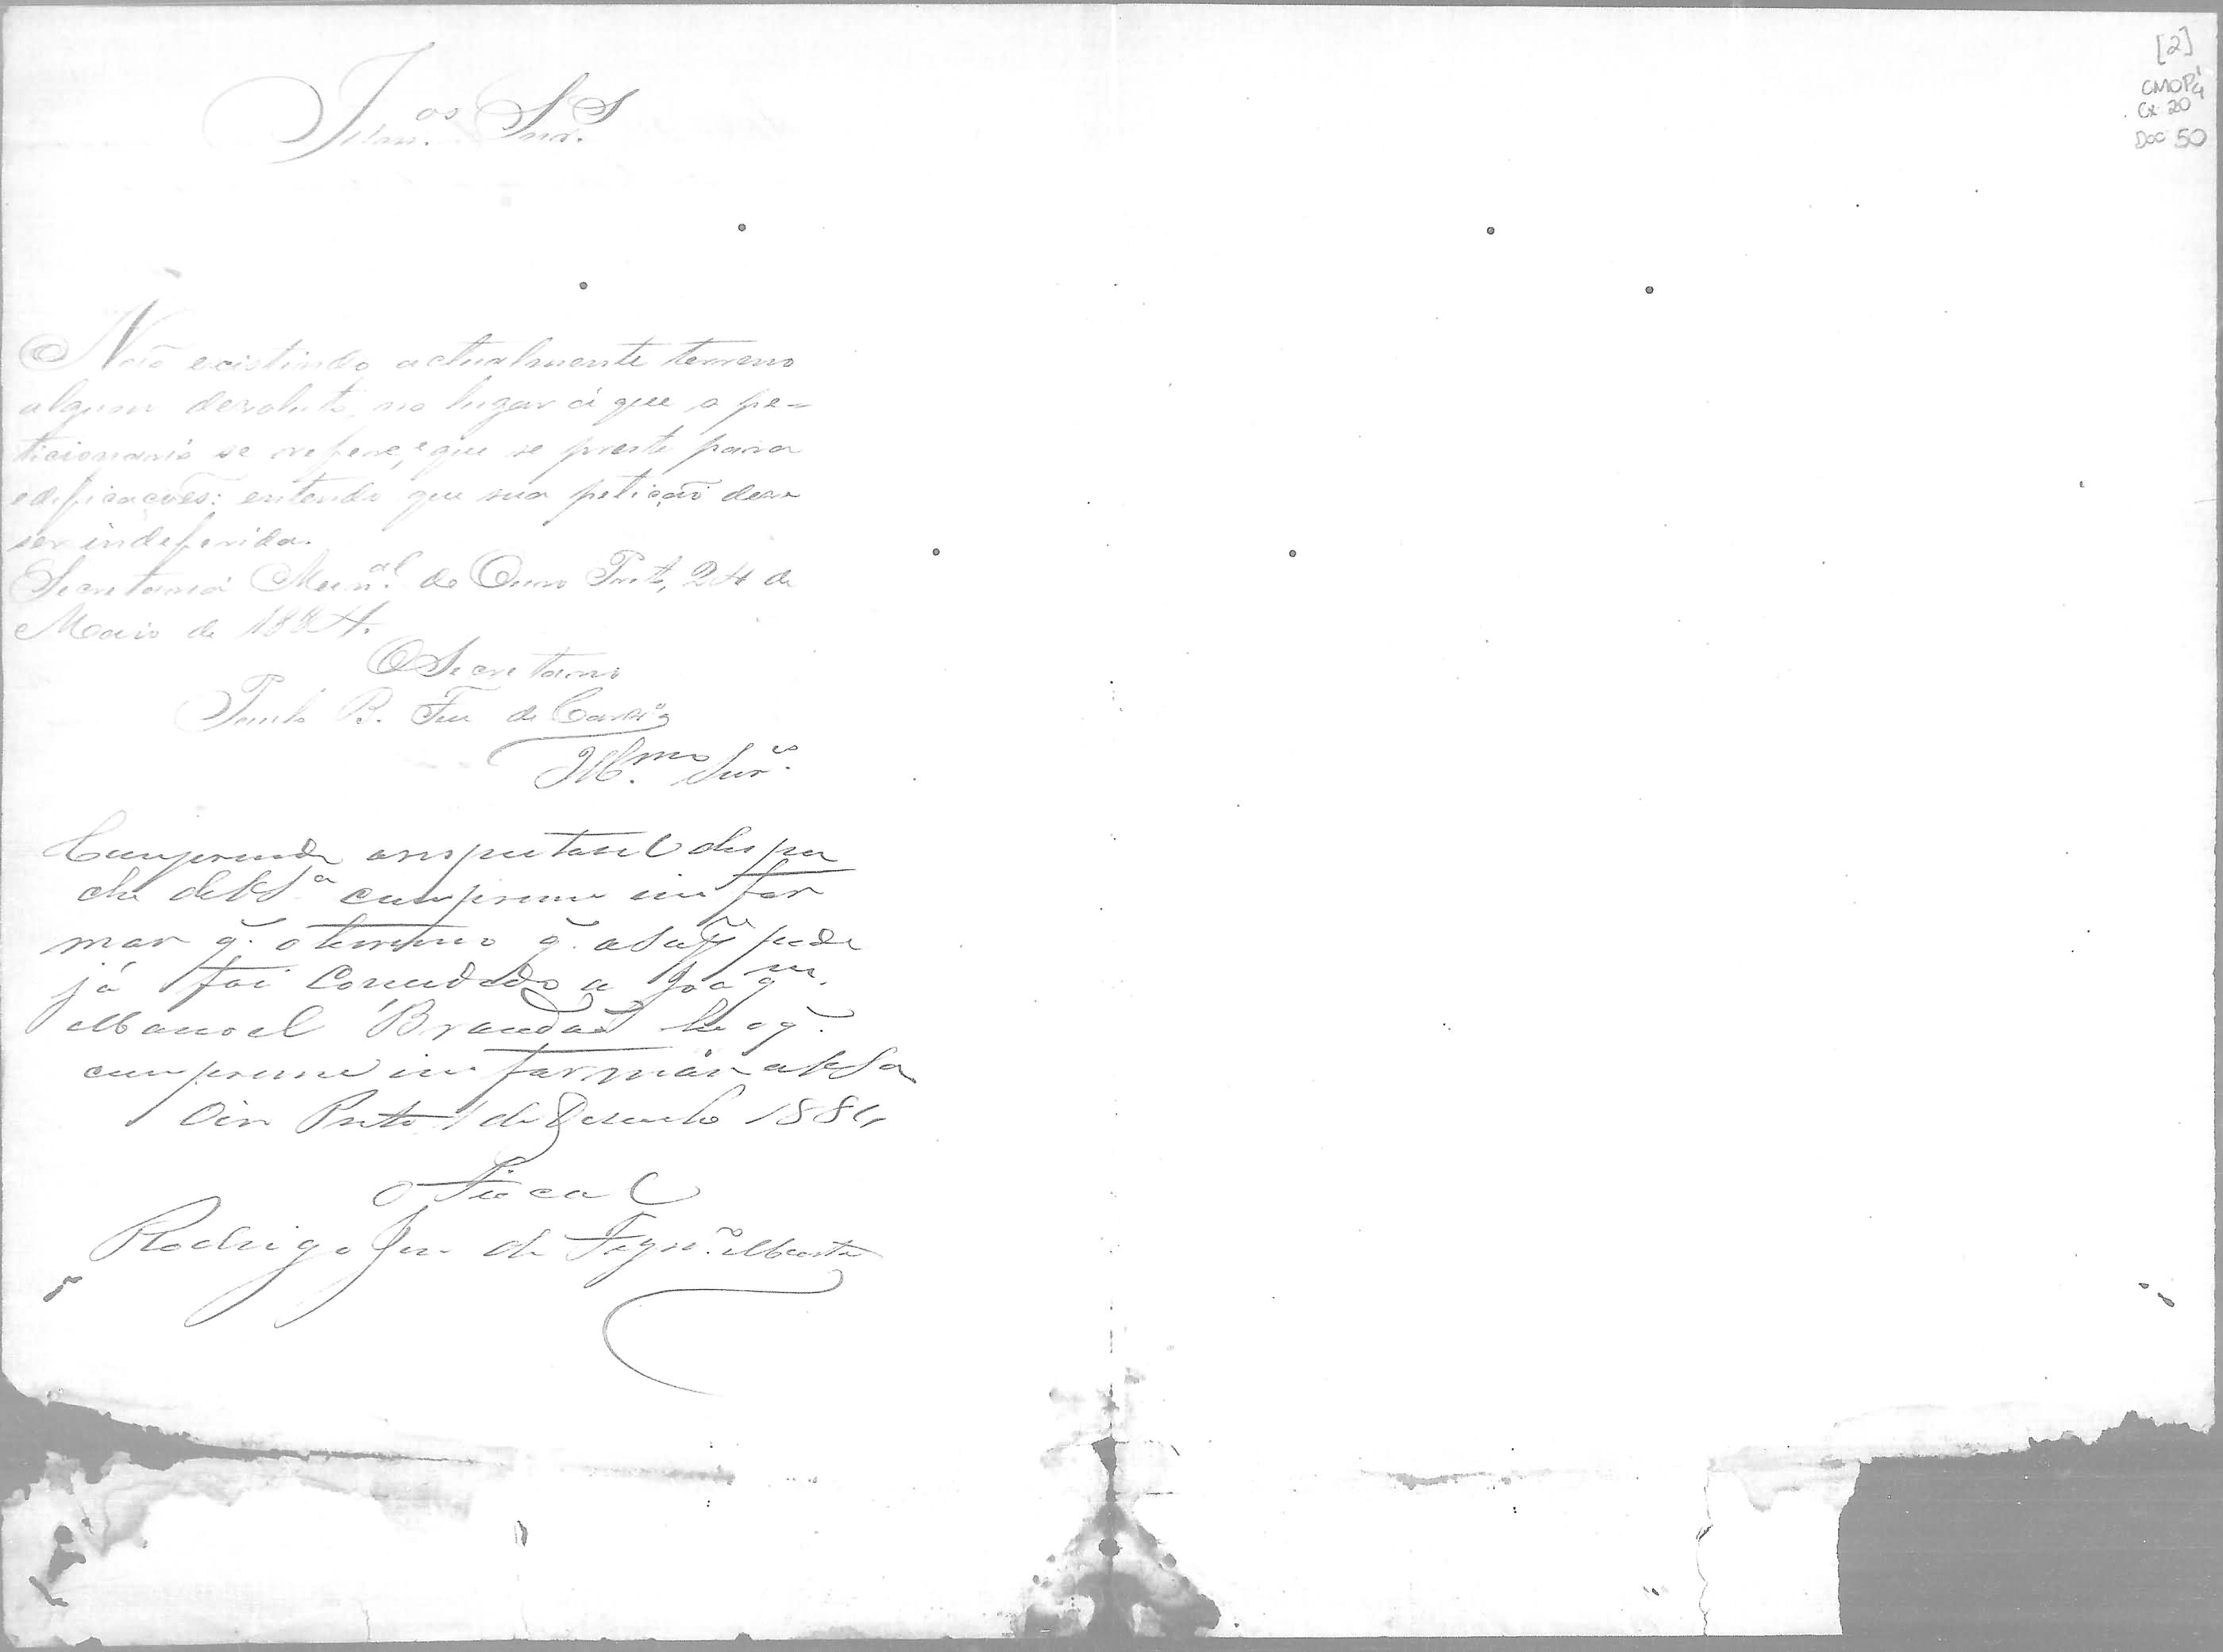 Illm.os Snr.s
Não existindo actualmente terreno
algum devoluto, no lugar á que o pe-
ticionario se refere, e que se preste para
edificacões: entendo que sua petição deve
ser indeferida.
Secretaria Mun.al de Ouro Preto, 24 de
Maio de 1884.
O Secretario
Paulo B. Feu de Carv.o
Ill.mo Snr.es
Cumprindo o respeitavel despa
cho de VSª cumpre me infor
mar q. o terreno q. a sup.e pede
já foi Concedido a Joaq.m
Manoel Brandão he o q.
cumpre me informar a VSa
Oiro Preto 1 de Dezembro 1884
o Fiscal
Rodrigo José de Figr.do Murta
[2]
CMOP
Cx 20
Doc 50